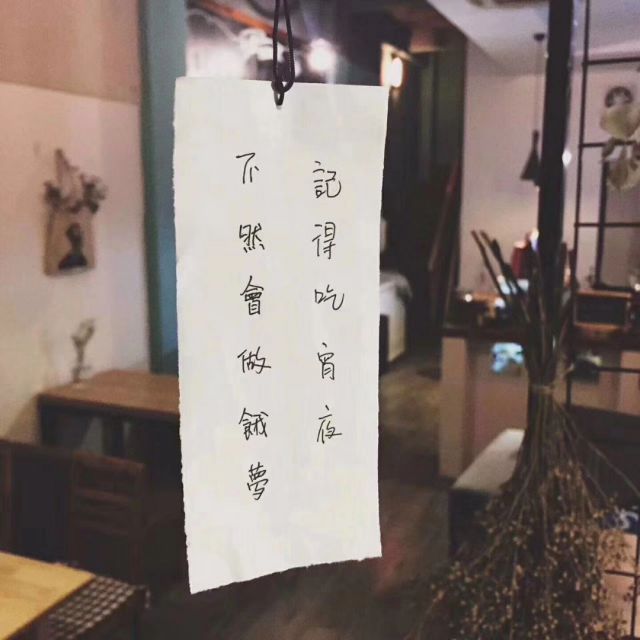 記得吃宵夜
不然會做餓夢